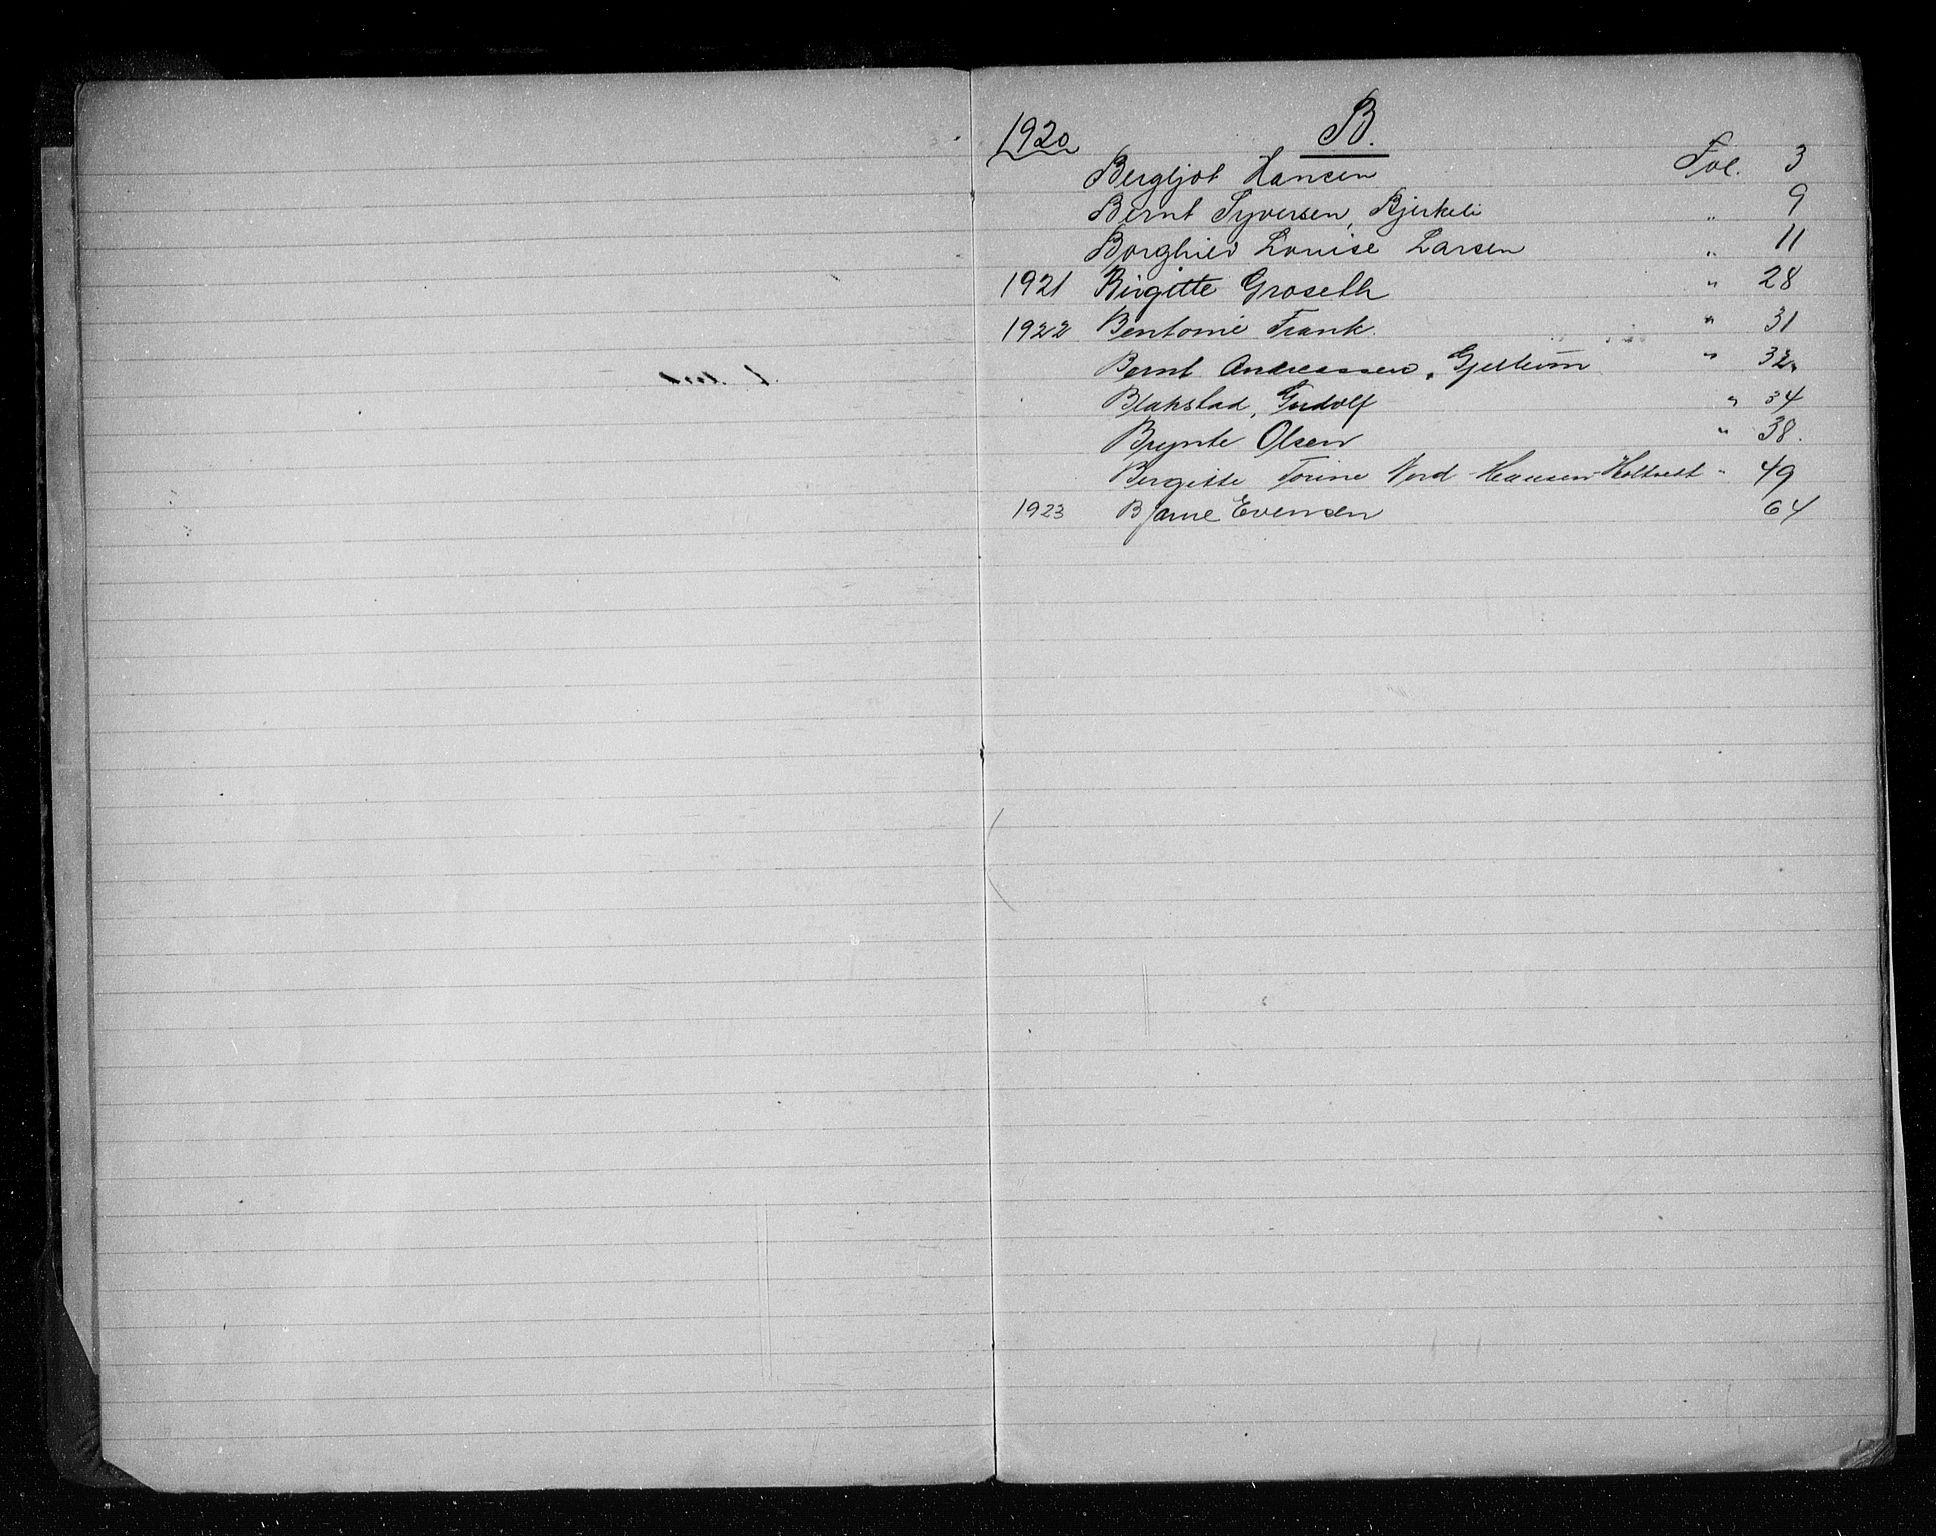 1920 B.
Bergljot Hansen Fol. 3
Bernt Syversen, Bjerkeli " 9
Borghild Louise Larsen " 11
1921 Birgitte Groseth " 28
1922 Bentonie Frank. " 31
Bernt Andreassen, Gjellum " 32
Blakstad, Gudolf " 34
Brynte Olsen " 38.
Bergitte Torine Nord-Hansen-Holtvedt " 49
1923 Bjarne Evensen 64